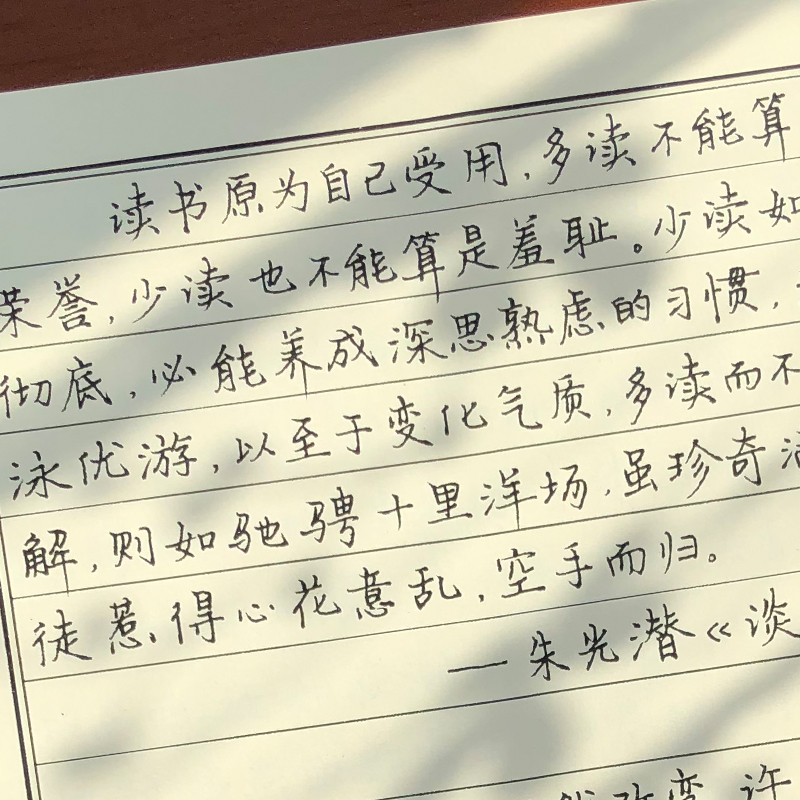 读书原为自己受用,多读不能算
荣誉,少读也不能算是羞耻。少读如
彻底,必能养成深思熟虑的习惯,
泳优游,以至于变化气质,多读而不
解,则如驰骋十里洋场,虽珍奇满
徒惹得心花意乱,空手而归。
——朱光潜《谈
改变,许